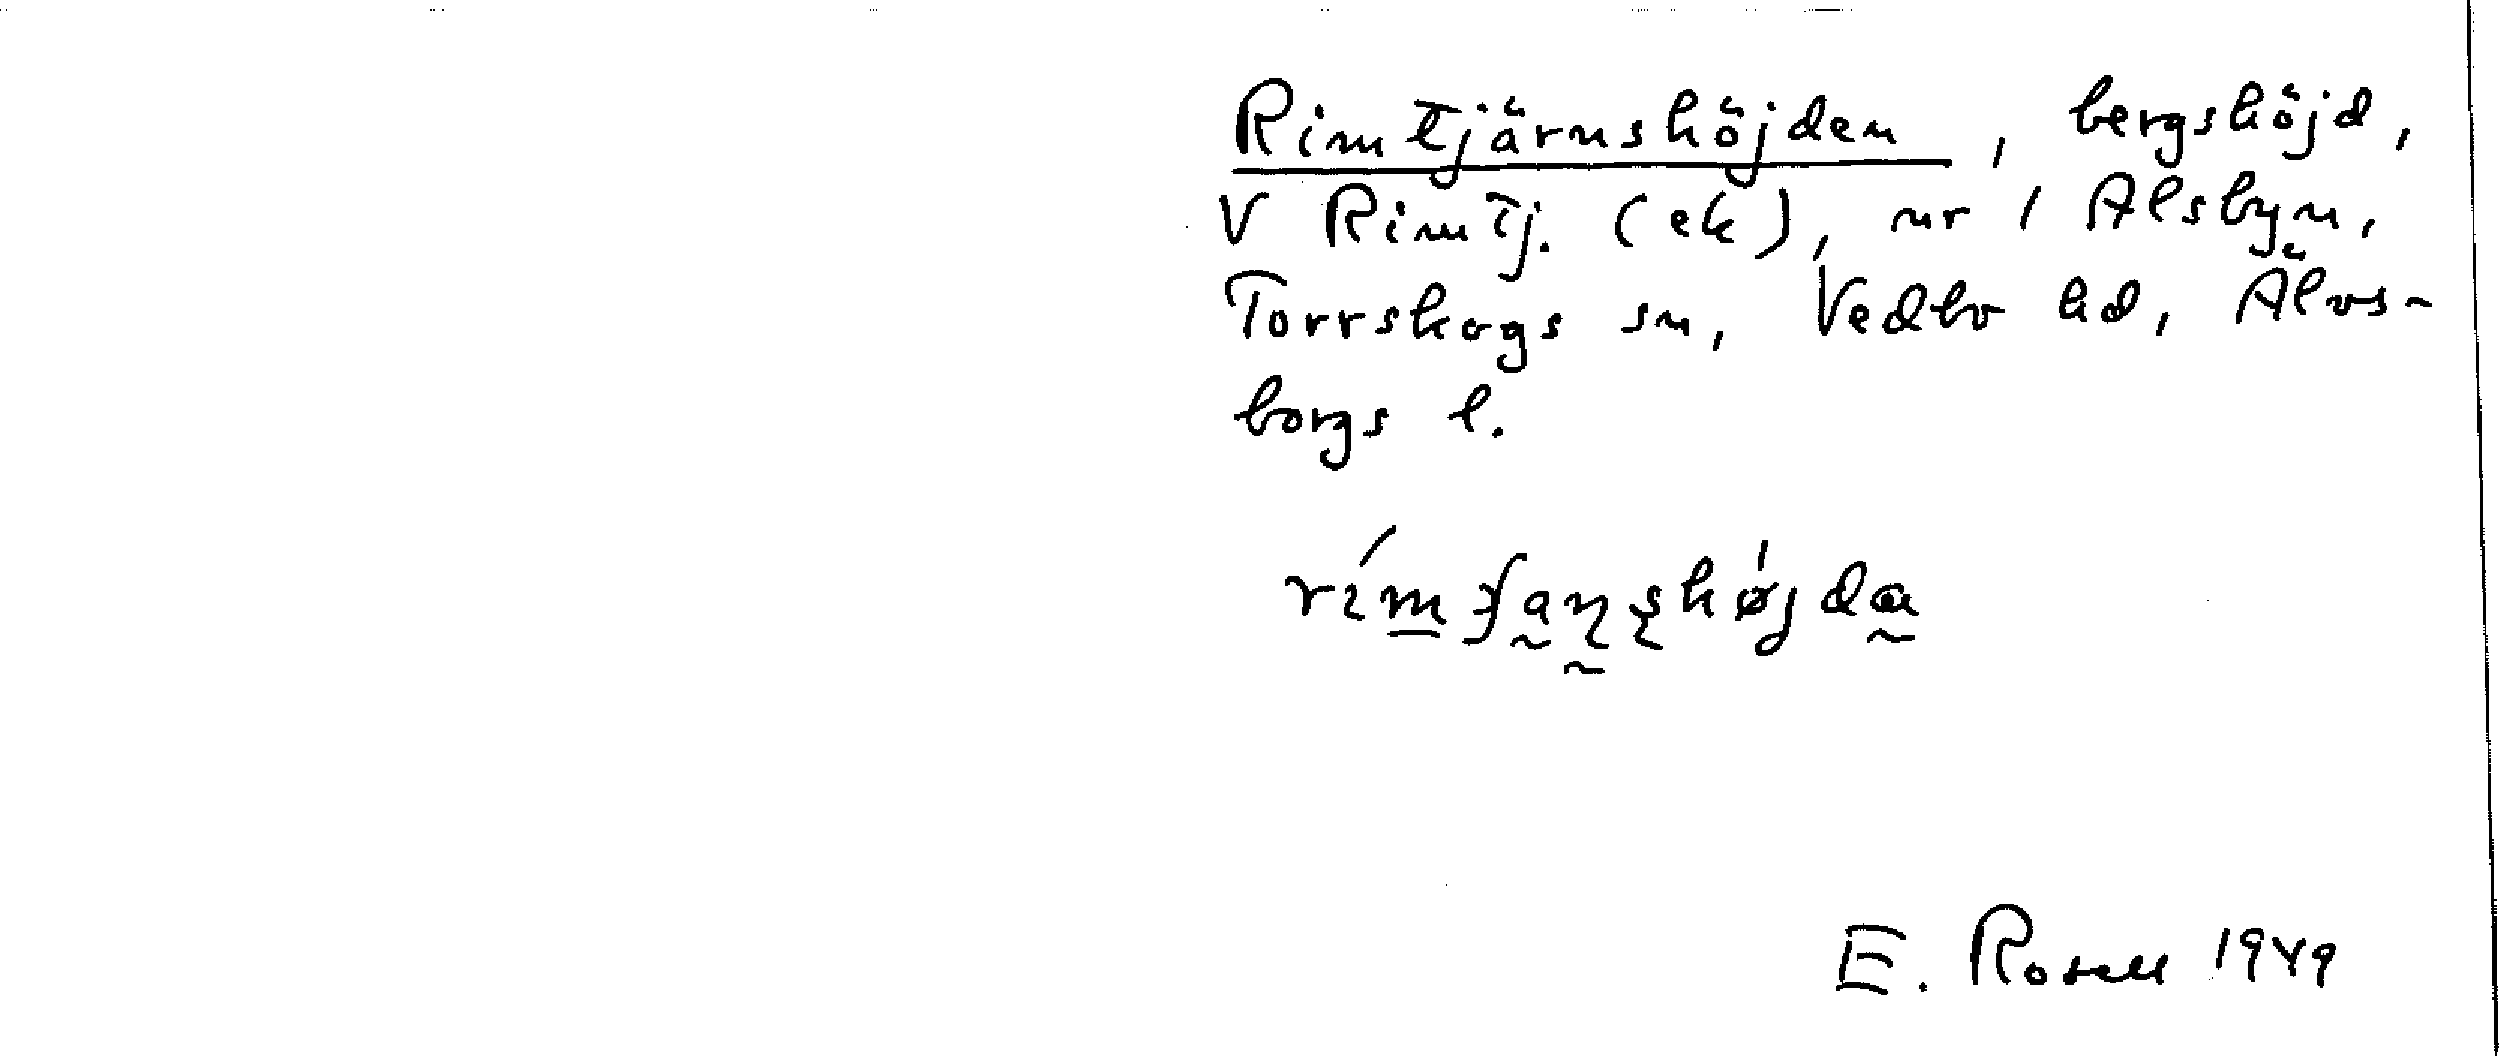 Rimtjärnshöjden, bergshöjd,
V Rimtj. (ek), nr 1 Alsbyn,
Torrskogs sn, Vedbo hd, Älvs-
borgs l.
E. Rosell 1949